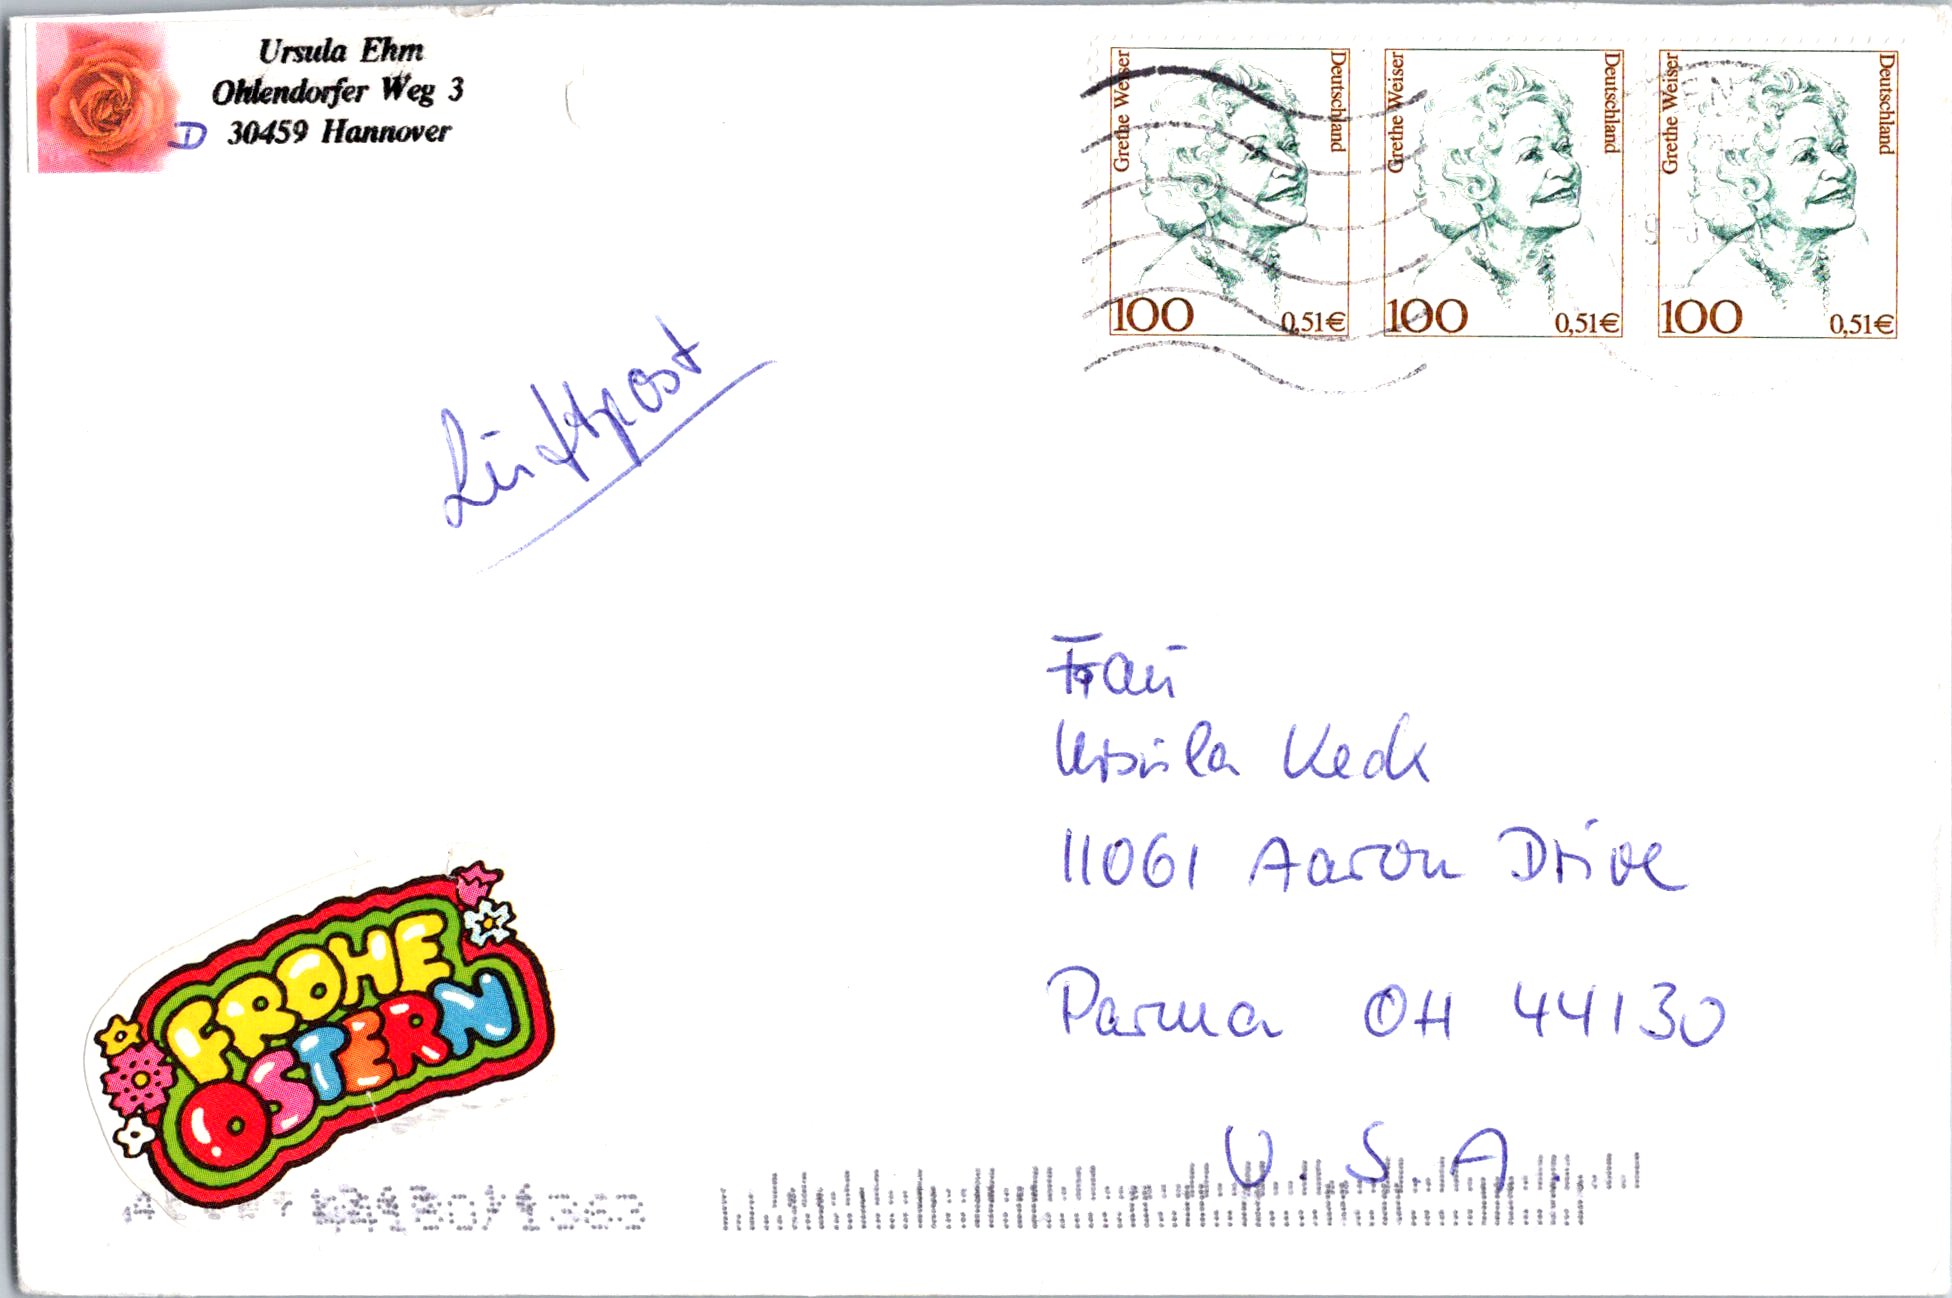 Ursula Ehm
Ohlendorfer Weg 3
D 30459 Hannover
Grethe Weiser
Deutschland
100
0,51€
Grethe Weiser
Deutschland
100
0,51€
Grethe Weiser
Deutschland
100
0,51€
Luftpost
Frau
Ursula Keck
11061 Aaron Drive
Parma OH 44130
U.S.A.
FROHE
OSTERN